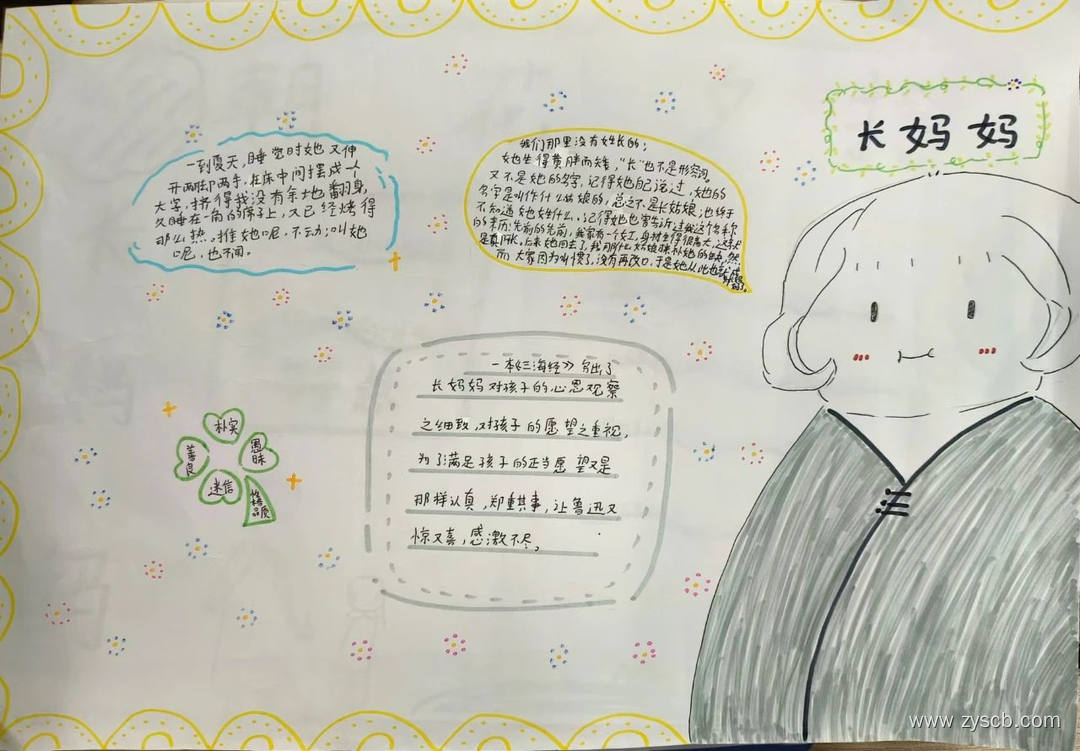 长妈妈
一到夏天,睡觉时她又伸
开两脚两手,在床中间摆成一个
大字,挤得我没有余地翻身,
久睡在一角的席子上,又已经烤得
那么热。推她呢,不动;叫她
呢,也不闻。
我们那里没有姓长的;
她生得黄胖而矮,“长”也不是形容词。
又不是她的名字,记得她自己说过,她的
名字是叫作什么姑娘的,总之不是长姑娘;也终于
不知道她姓什么。记得她也曾告诉过我这个名称
的来历:先前的先前,我家有一个女工,身材生得很高大,这就
是真阿长。后来她回去了,我那什么姑娘才来补她的缺,然
而大家因为叫惯了,没有再改口,于是她从此也就成
一本《三海经》写出了
长妈妈对孩子的心思观察
之细致,对孩子的愿望之重视,
为了满足孩子的正当愿望又是
那样认真,郑重其事,让鲁迅又
惊又喜,感激不尽。
朴实
善良
愚昧
迷信
性格
品质
www.zyscb.com